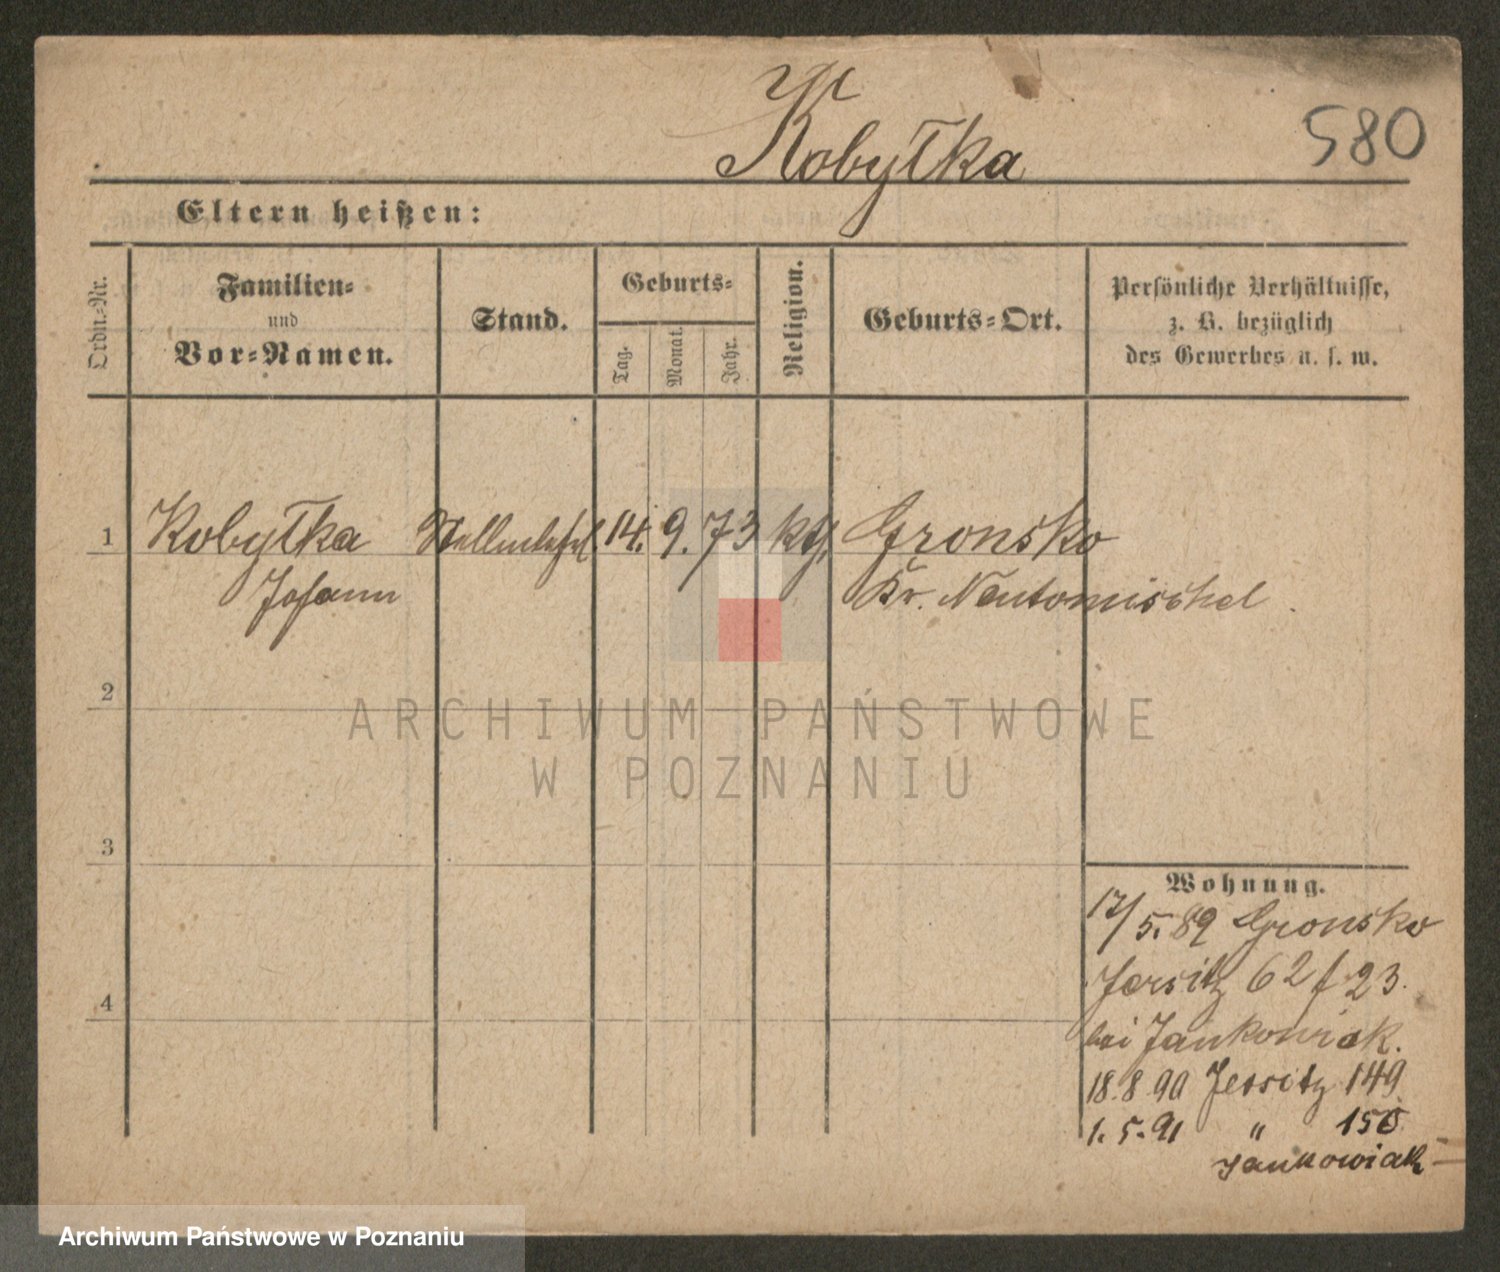 Kobyłka
580
Eltern heißen:
Ordn.-Nr.
Familien-
und
Vor-Namen.
Stand.
Geburts-
Tag.
Monat.
Jahr.
Religion.
Geburts-Ort.
Persönliche Verhältnisse,
z. B. bezüglich
des Gewerbes u. s. w.
1 Kobyłka 14. 9. 73 kth. Gronsko
Johann Kr. Neutomischel
2
ARCHIWUM PAŃSTWOWE
W POZNANIU
3
Wohnung.
17/5. 89 Gronsko
Jersitz 62 f 23.
bei Jankowiak.
4
18. 8. 90 Jersitz 149
1. 5. 91 " 150
Jankowiak
Archiwum Państwowe w Poznaniu